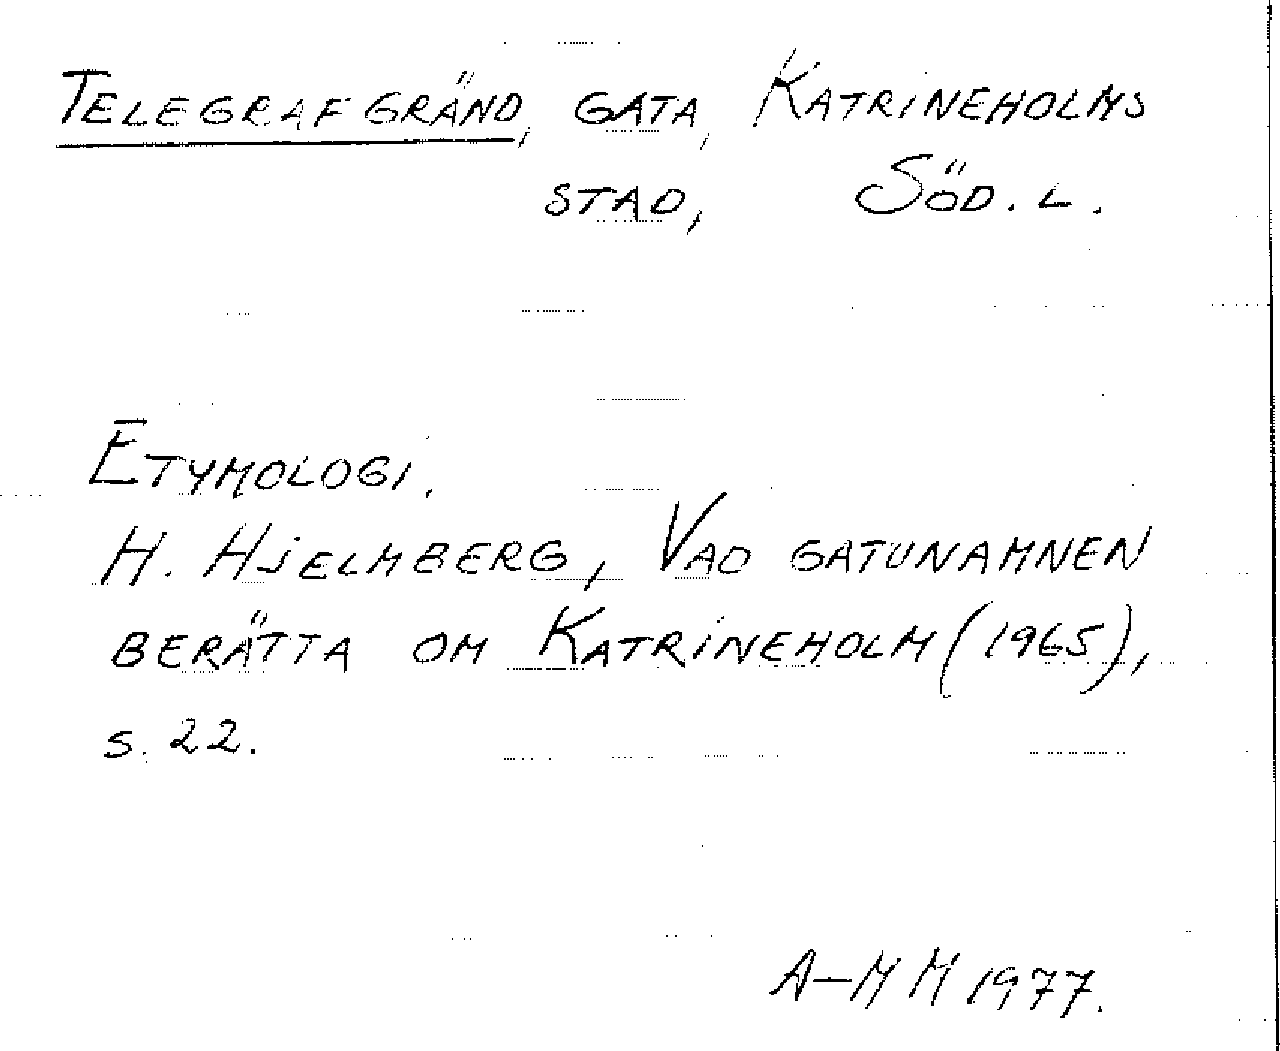 TELEGRAFGRÄND, GATA, KATRINEHOLMS
STAD, SÖD. L.
ETYMOLOGI.
H. HJELMBERG, VAD GATUNAMNEN
BERÄTTA OM KATRINEHOLM (1965),
S. 22.
A-M M 1977.